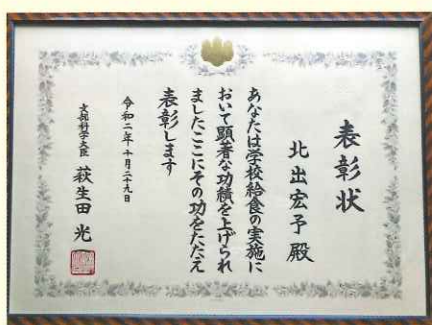 表彰状
北出宏予殿
あなたは学校給食の実施に
おいて顕著な功績を上げられ
ましたここにその功をたたえ
表彰します
令和二年十月二十九日
文部科学大臣 萩生田 光